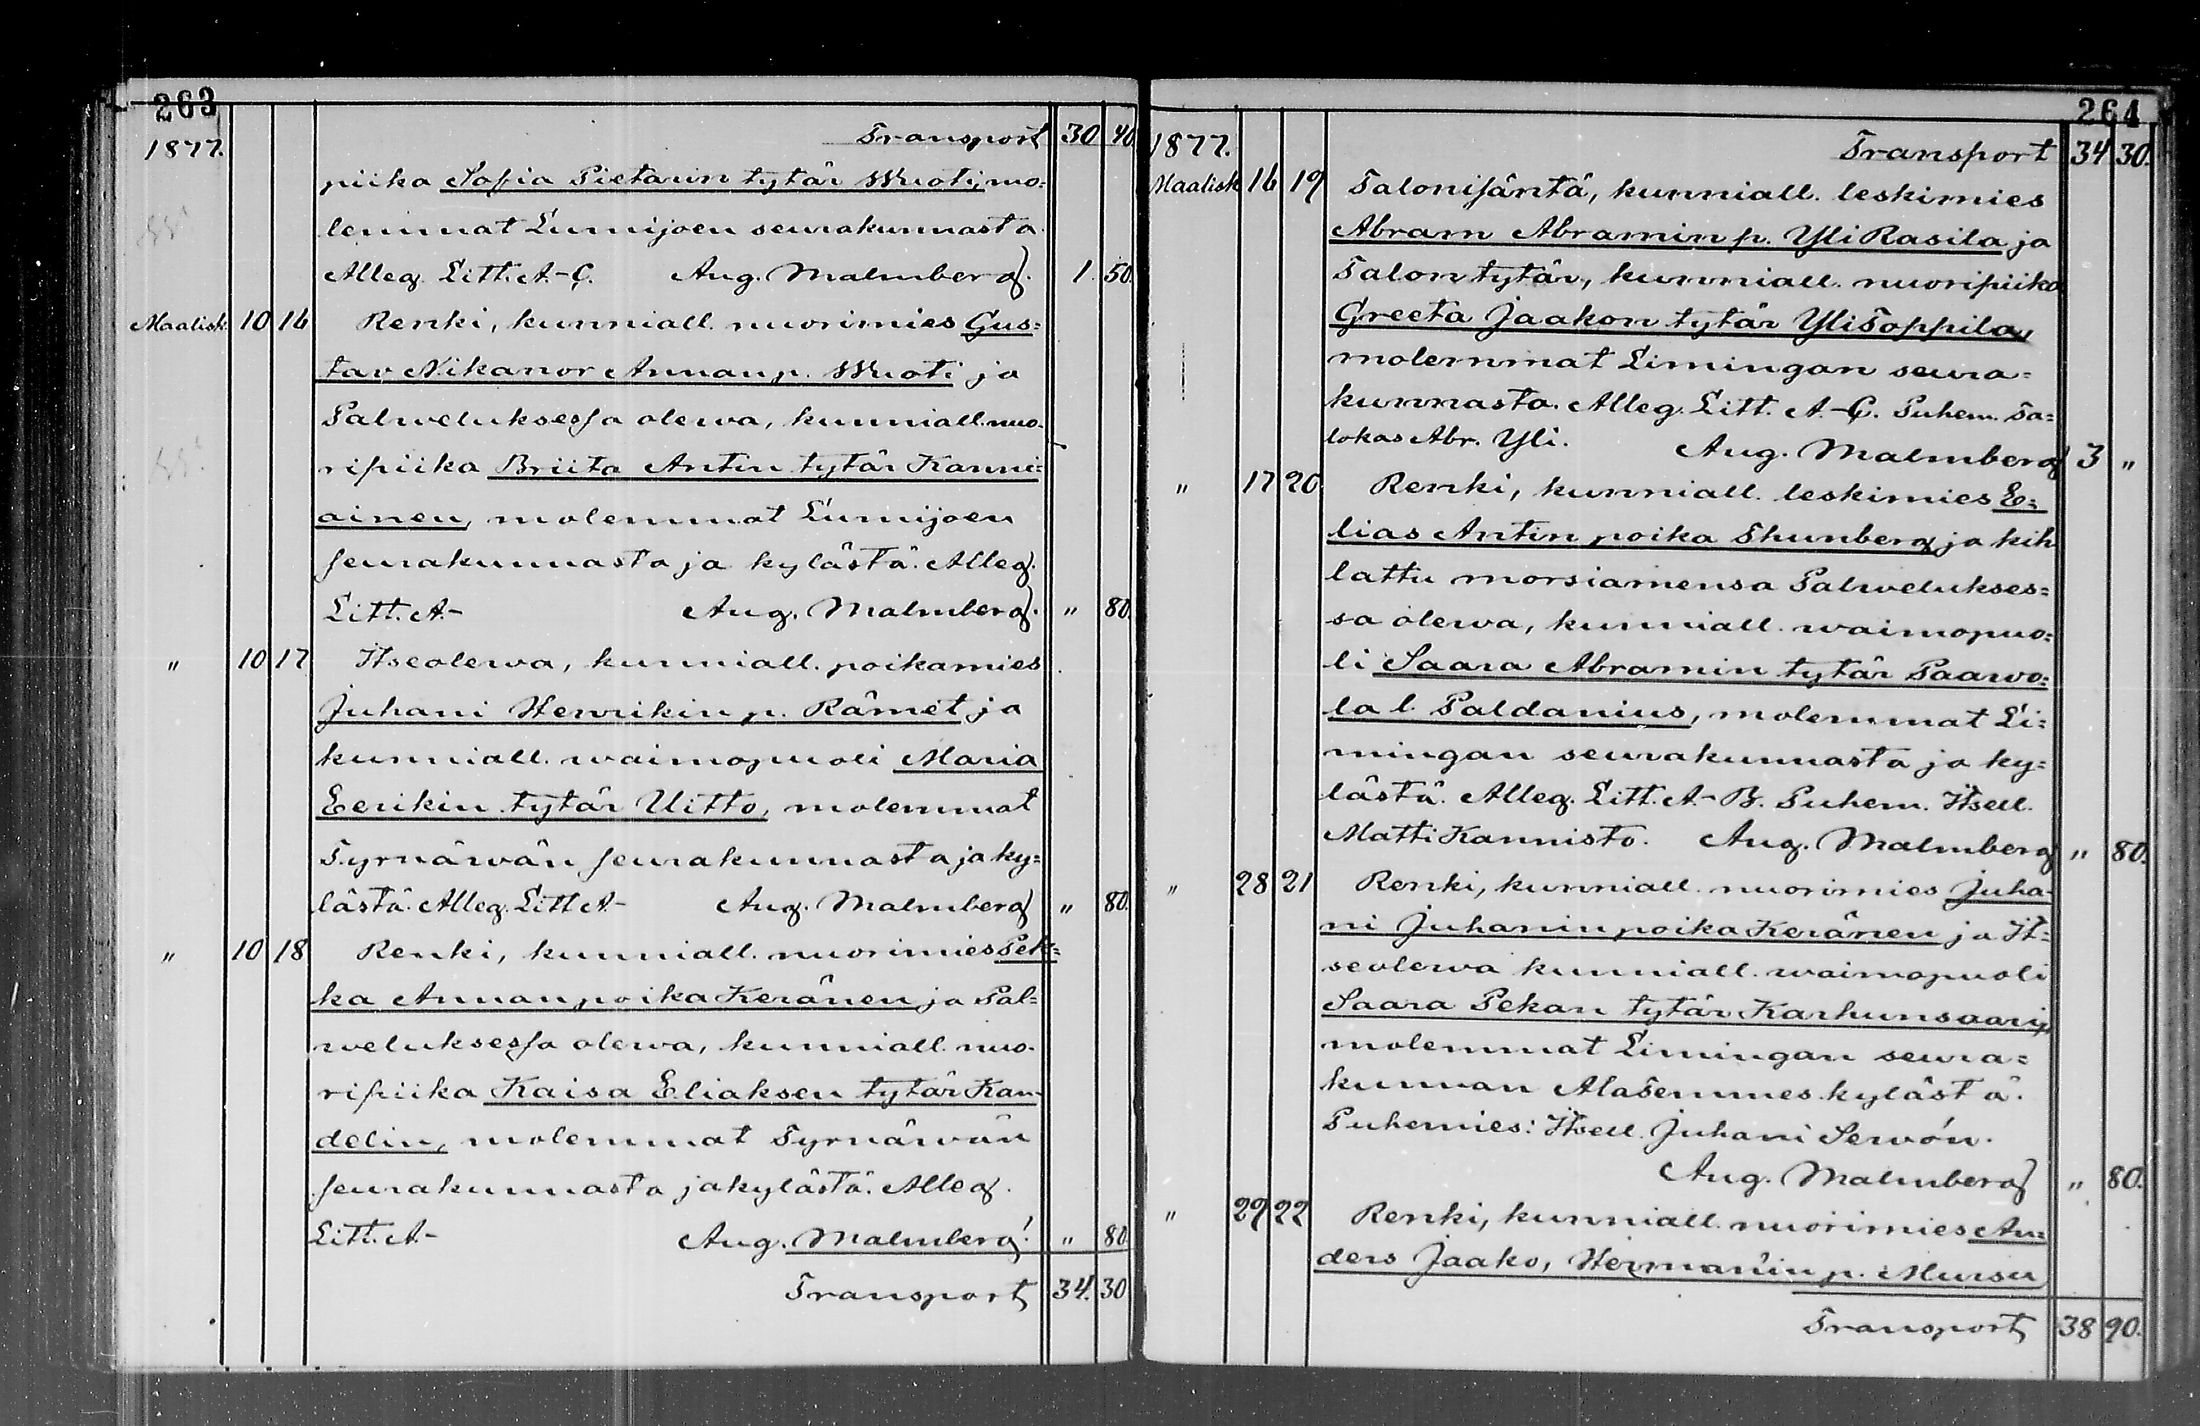 263
1877.
Transport 30 40
piika Sofia Pietarin tytär Wuoti, mo=
lemmat Lumijoen seurakunnasta.
Alleg. Litt. A-C. Aug. Malmberg. 1. 50.
Maalisk. 10 16 Renki, kunniall. nuorimies Gus=
tav Nikanor Annan p. Wuoti ja
Palweluksessa olewa, kunniall. nuo-
ripiika Briita Antin tytär Kanni=
ainen, molemmat Lumijoen
seurakunnasta ja kylästä. Alleg.
Litt. A.- Aug. Malmberg. " 80.
" 10 17 Itseolewa, kunniall. poikamies
Juhani Henrikin p. Rämet ja
kunniall. waimopuoli Maria
Eerikin tytär Uitto, molemmat
Tyrnäwän seurakunnasta ja ky=
lästä. Alleg. Litt A- Aug. Malmberg " 80.
" 10 18 Renki, kunniall. nuorimies Pek=
ka Annan poika Keränen ja Pal=
weluksessa olewa, kunniall. nuo-
ripiika Kaisa Eliaksen tytär Kan-
delin, molemmat Tyrnäwän
seurakunnasta ja kylästä. Alleg.
Litt. A.- Aug. Malmberg. " 80
Transport 34. 30
264
1877.
Transport 34 30.
Maalisk 16 19 Talonisäntä, kunniall. leskimies
Abram Abramin p. YliRasila ja
Talon tytär, kunniall. nuoripiika
Greeta Jaakon tytär YliToppila,
molemmat Limingan seura=
kunnasta. Alleg. Litt. A-C. Puhem. Ta=
lokas Abr. Yli. Aug. Malmberg 3 "
" 17 20. Renki, kunniall. leskimies E=
lias Antin poika Thunberg ja kih
lattu morsiamensa Palwelukses=
sa olewa, kunniall. waimopuo=
li Saara Abramin tytär Paawo=
la l. Paldanius, molemmat Li=
mingan seurakunnasta ja ky=
lästä. Alleg. Litt. A-B. Puhem. Itsell.
Matti Kannisto. Aug. Malmberg " 80.
" 28 21 Renki, kunniall. nuorimies Juha-
ni Juhanin poika Keränen ja It=
seolewa kunniall. waimopuoli
Saara Pekan tytär Karhunsaari,
molemmat Limingan seura=
kunnan AlaTemmes kylästä.
Puhemies: Itsell. Juhani Servón.
Aug. Malmberg " 80.
" 29 22 Renki, kunniall. nuorimies An=
ders Jaako, Hermanin p. Mursu
Transport 38 90.